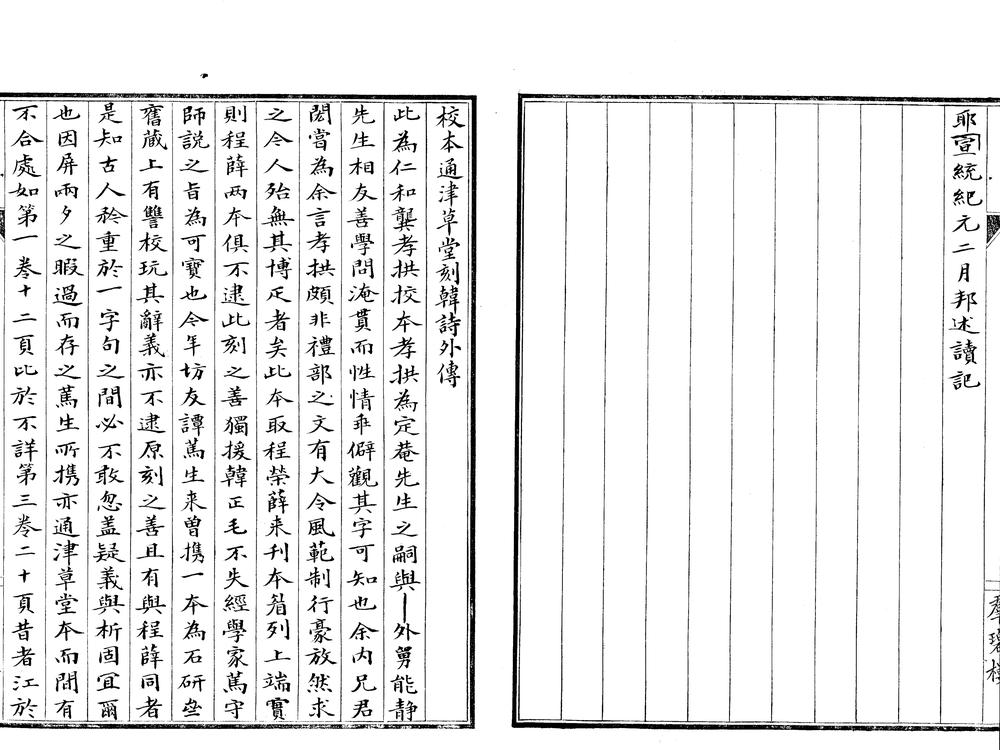 耶宣統紀元二月邦述讀記
羣碧樓
校本通津草堂刻韓詩外傳
此為仁和龔孝拱校本孝拱為定菴先生之嗣與外舅能静
先生相友善學問淹貫而性情乖僻觀其字可知也余内兄君
閎嘗為余言孝拱頗非禮部之文有大令風範制行豪放然求
之今人殆無其博疋者矣此本取程榮薛来刊本着列上端實
則程薛兩本俱不逮此刻之善獨援韓正毛不失經學家篤守
師説之旨為可寶也今年坊友譚篤生来曾携一本為石研齋
舊蔵上有讐校玩其辭義亦不逮原刻之善且有與程薛同者
是知古人矜重於一字句之間必不敢忽盖疑義與析固宜爾
也因屏兩夕之暇過而存之篤生所携亦通津草堂本而間有
不合處如第一卷十二頁比於不詳第三卷二十頁昔者江於